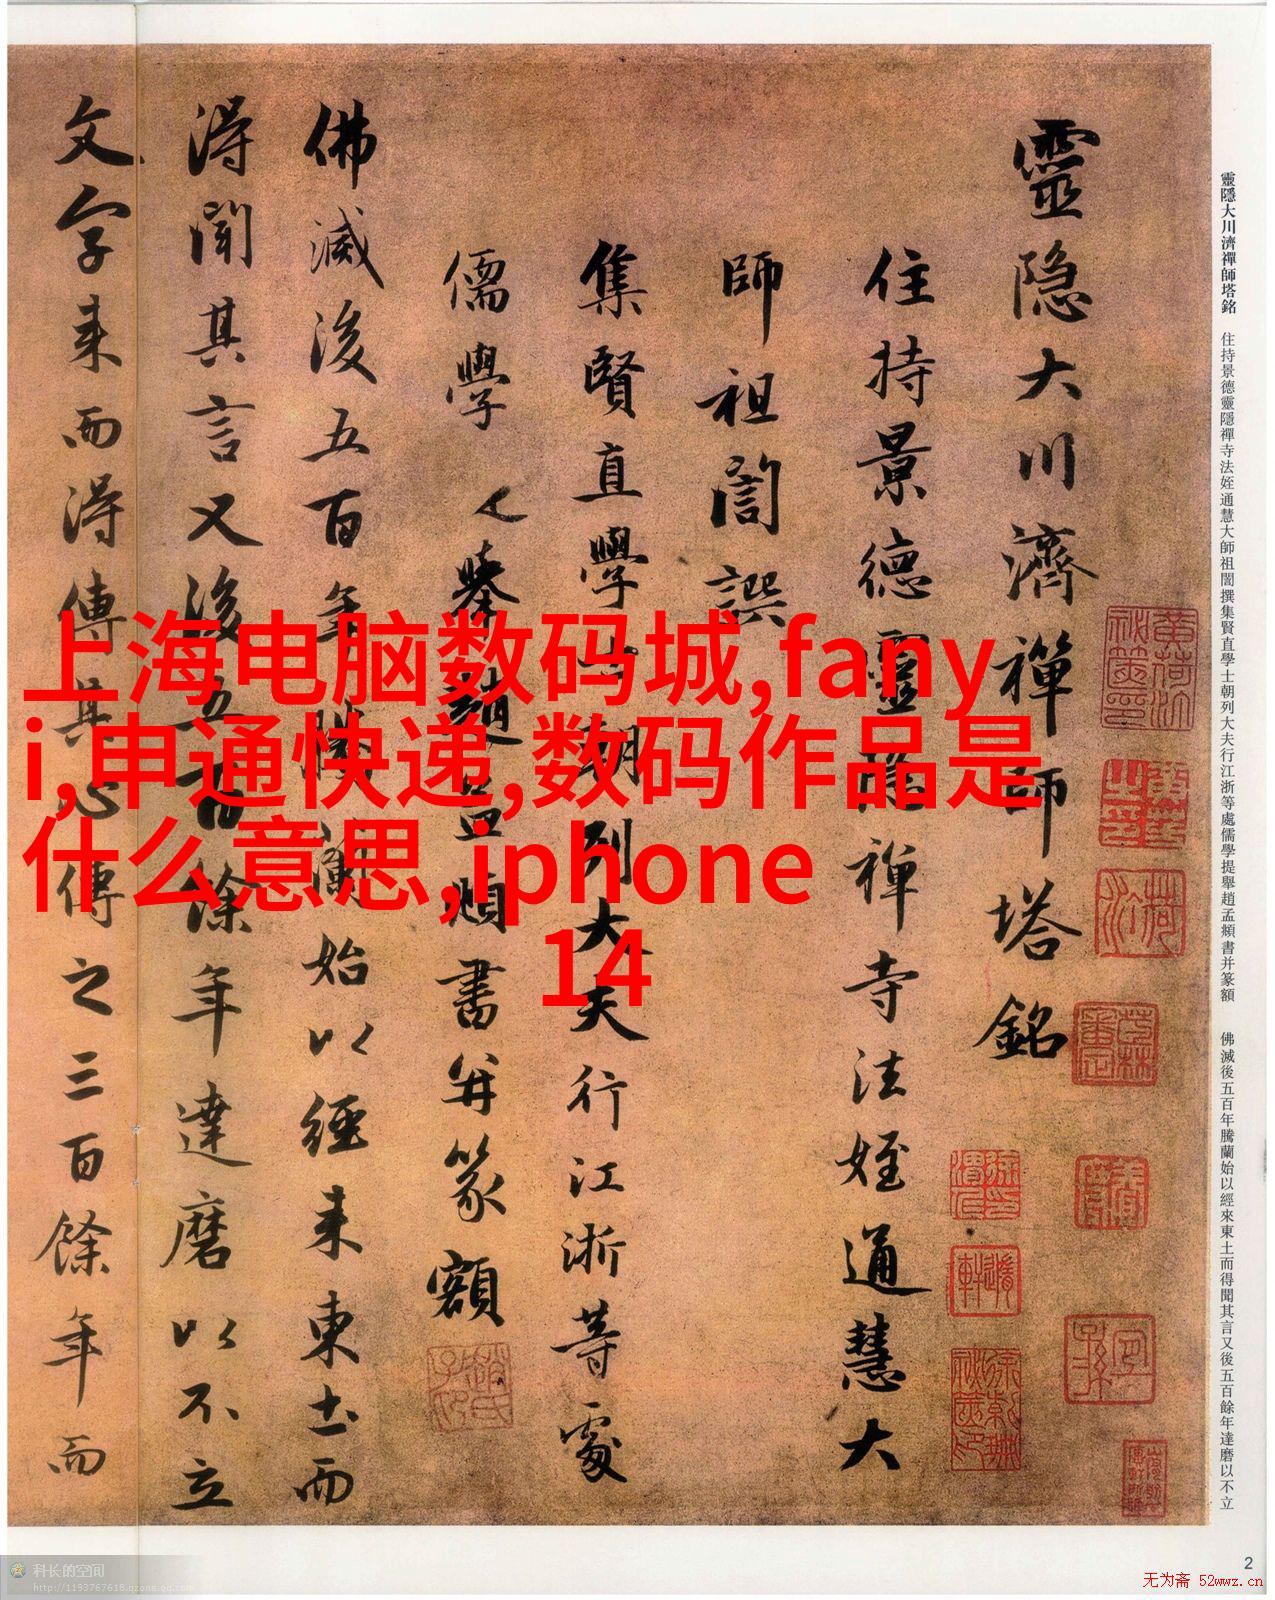 靈隐大川濟禪師塔銘
住持景德靈隐禪寺法姪通慧大
師祖誾譔
集賢直學士朝列大夫行江浙等處
儒學提舉趙孟頫書并篆額
佛滅後五百年騰蘭始以經来東土而
得聞其言又後五百餘年達磨以不立
文字来而得傳其心傳之三百餘年而
靈隱大川濟禪師塔銘 住持景德靈隱禪寺法姪通慧大師祖誾撰集賢直學士朝列大夫行江浙等處儒學提舉趙孟頫書并篆額 佛滅後五百年騰蘭始以經來東土而得聞其言又後五百餘年達磨以不立
上海电脑数码城,fany
i,申通快递,数码作品是
什么意思,iphone
14
2
科长的空间
http://1193767618.qzone.qq.com
无为斋 52wwz.cn